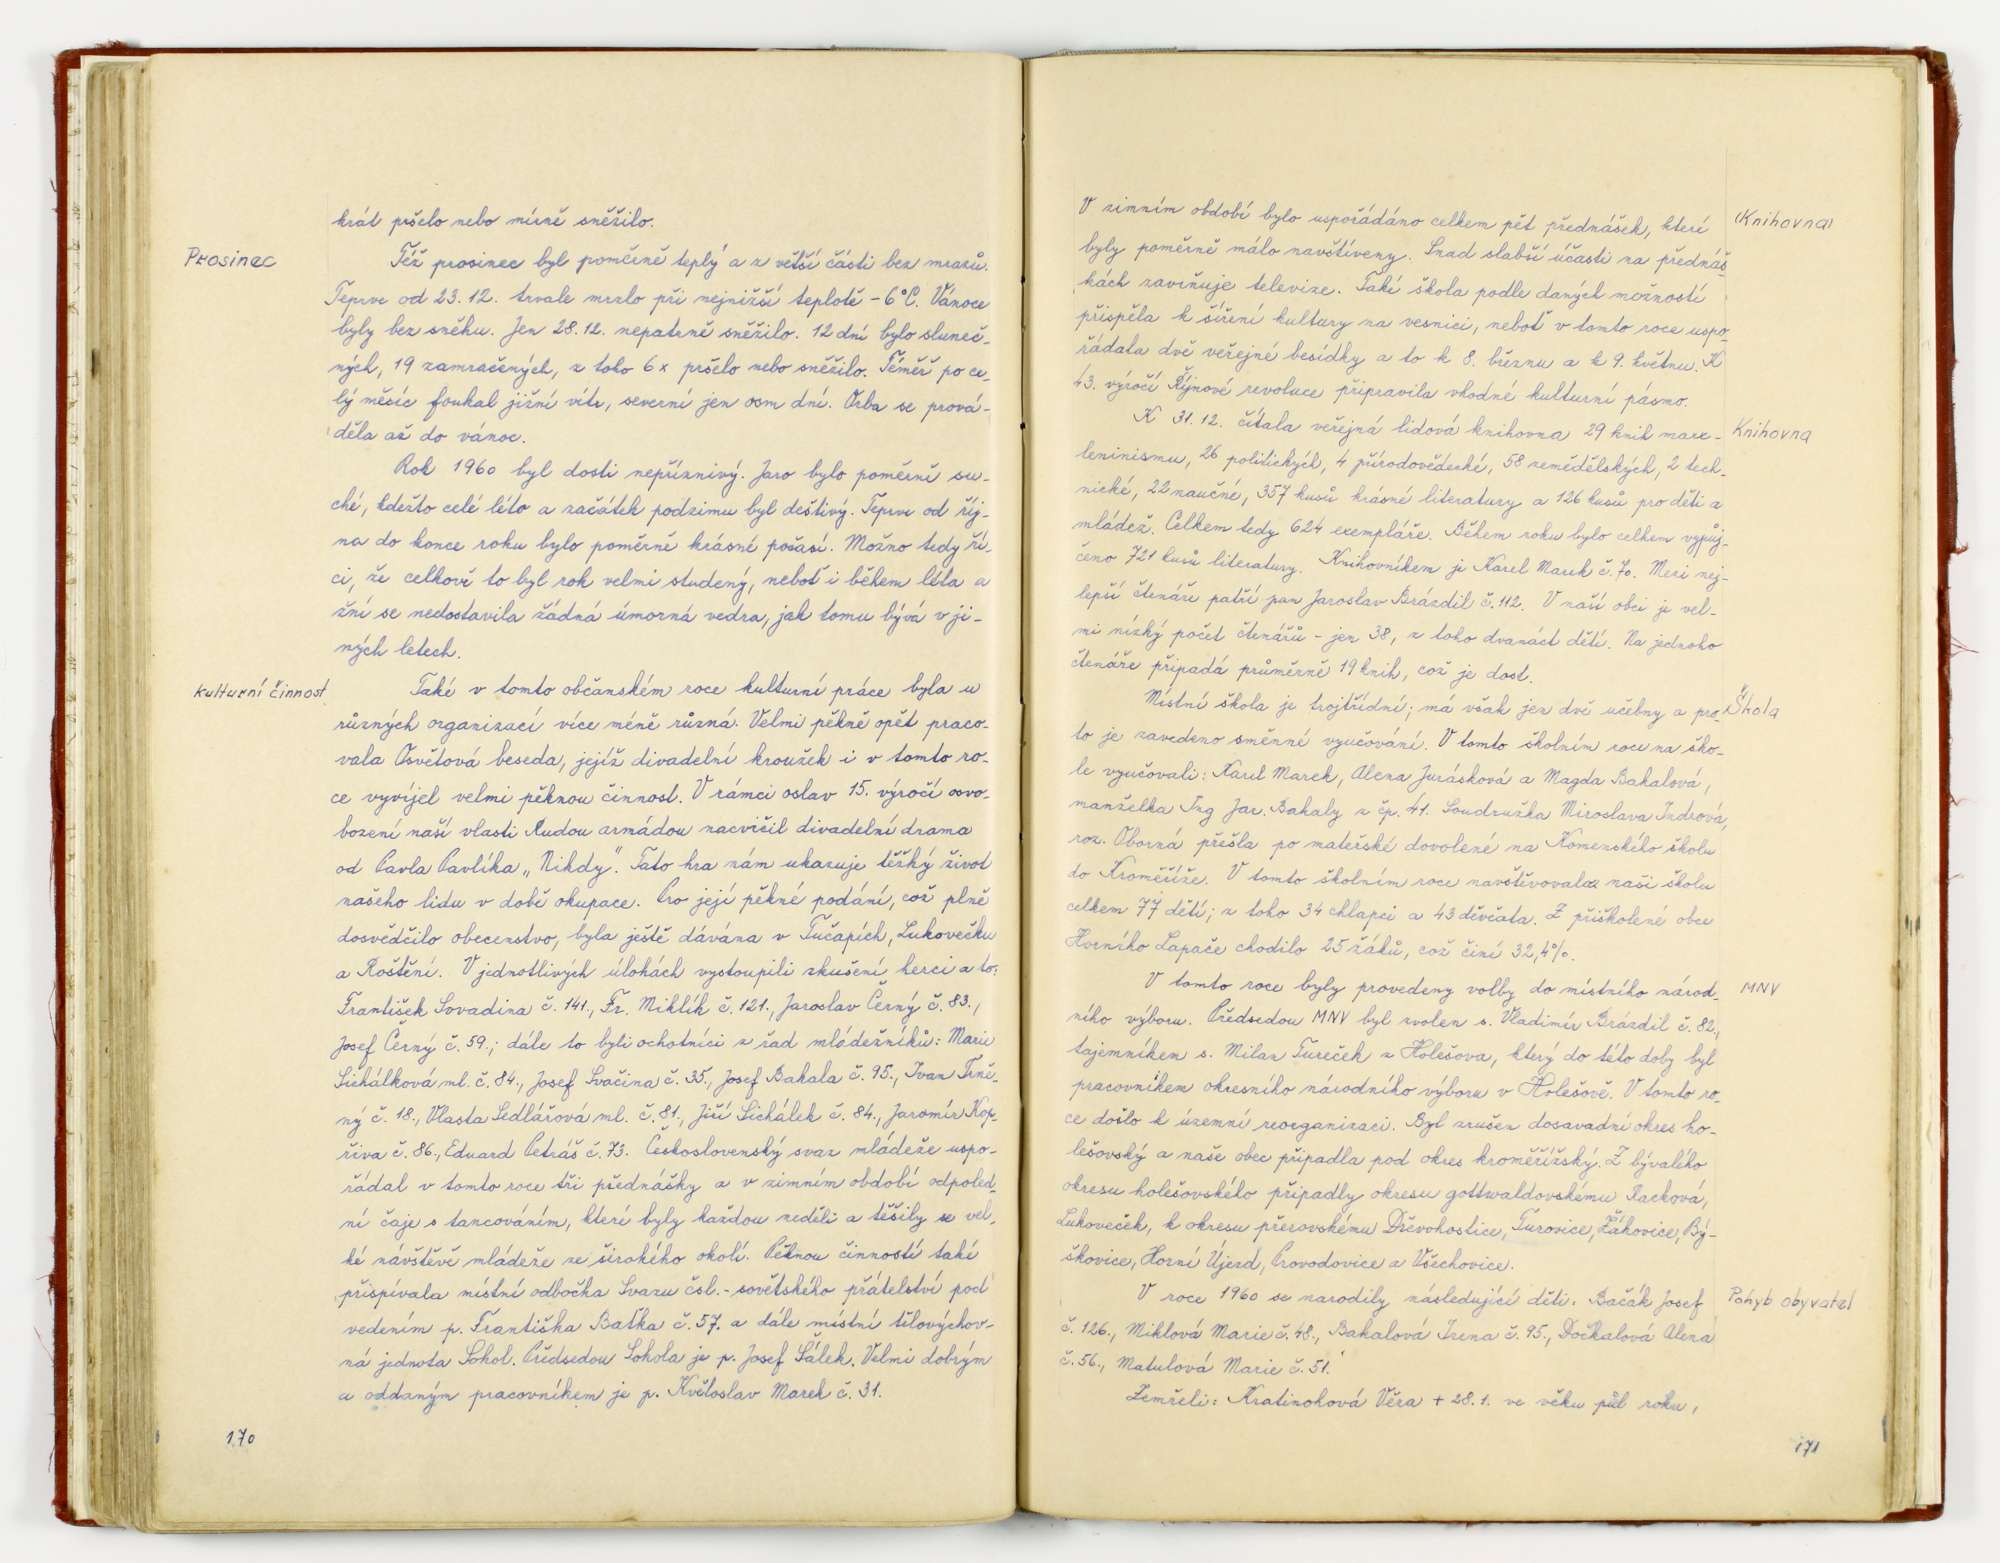 krát pršelo nebo mírně sněžilo.
Prosinec
Též prosinec byl poměrně teplý a z větší části bez mrazů.
Teprve od 23.12. trvale mrzlo při nejnižší teplotě -6°C. Vánoce
byly bez sněhu. Jen 28.12. nepatrně sněžilo. 12 dní bylo sluneč-
ných, 19 zamračených, z toho 6x pršelo nebo sněžilo. Téměř po ce-
lý měsíc foukal jižní vítr, severní jen osm dní. Orba se prová-
děla až do vánoc.
Rok 1960 byl dosti nepříznivý. Jaro bylo poměrně su-
ché, kdežto celé léto a začátek podzimu byl deštivý. Teprve od říj-
na do konce roku bylo poměrně krásné počasí. Možno tedy ří-
ci, že celkově to byl rok velmi studený, neboť i během léta a
žní se nedostavila žádná úmorná vedra, jak tomu bývá v ji-
ných letech.
kulturní činnost
Také v tomto občanském roce kulturní práce byla u
různých organizací více méně různá. Velmi pěkně opět praco-
vala Osvětová beseda, jejíž divadelní kroužek i v tomto ro-
ce vyvíjel velmi pěknou činnost. V rámci oslav 15. výročí osvo-
bození naší vlasti Rudou armádou nacvičil divadelní drama
od Pavla Pavlíka „Nikdy". Tato hra nám ukazuje těžký život
našeho lidu v době okupace. Pro její pěkné podání, což plně
dosvědčilo obecenstvo, byla ještě dávána v Tučapích, Lukovečku
a Roštění. V jednotlivých úlohách vystoupili zkušení herci a to:
František Sovadina č. 141., Fr. Miklík č. 121., Jaroslav Černý č. 83.,
Josef Černý č. 59.; dále to byli ochotníci z řad mládežníků: Marie
Sichálková ml. č. 84., Josef Svačina č. 35., Josef Bakala č. 95., Ivan Trně-
ný č. 18., Vlasta Sedlářová ml. č. 81., Jiří Sichálek č. 84., Jaromír Kop-
řiva č. 86., Eduard Petráš č. 73. Československý svaz mládeže uspo-
řádal v tomto roce tři přednášky a v zimním období odpoled-
ní čaje s tancováním, které byly každou neděli a těšily se vel-
ké návštěvě mládeže ze širokého okolí. Pěknou činností také
přispívala místní odbočka Svazu čsl.-sovětského přátelství pod
vedením p. Františka Baťka č. 57. a dále místní tělovýchov-
ná jednota Sokol. Předsedou Sokola je p. Josef Šálek. Velmi dobrým
a oddaným pracovníkem je p. Květoslav Marek č. 31.
170
V zimním období bylo uspořádáno celkem pět přednášek, které
(Knihovna)
byly poměrně málo navštíveny. Snad slabší účasti na přednáš-
kách zaviňuje televize. Také škola podle daných možností
přispěla k šíření kultury na vesnici, neboť v tomto roce uspo-
řádala dvě veřejné besídky a to k 8. březnu a k 9. květnu. K
43. výročí Říjnové revoluce připravila vhodné kulturní pásmo.
K 31.12. čítala veřejná lidová knihovna 29 knih marx-
Knihovna
leninismu, 26 politických, 4 přírodovědecké, 58 zemědělských, 2 tech-
nické, 22 naučné, 357 kusů krásné literatury a 126 kusů pro děti a
mládež. Celkem tedy 624 exempláře. Během roku bylo celkem vypůj-
čeno 721 kusů literatury. Knihovníkem je Karel Marek č. 70. Mezi nej-
lepší čtenáře patří pan Jaroslav Brázdil č. 112. V naší obci je vel-
mi nízký počet čtenářů - jen 38, z toho dvanáct dětí. Na jednoho
čtenáře připadá průměrně 19 knih, což je dost.
Místní škola je trojtřídní; má však jen dvě učebny a pro-
Škola
to je zavedeno směnné vyučování. V tomto školním roce na ško-
le vyučovali: Karel Marek, Alena Jurásková a Magda Bakalová,
manželka Ing Jar. Bakaly z čp. 41. Soudružka Miroslava Indrová,
roz. Oborná přešla po mateřské dovolené na Komenského školu
do Kroměříže. V tomto školním roce navštěvovala naši školu
celkem 77 dětí; z toho 34 chlapci a 43 děvčata. Z přiškolené obce
Horního Lapače chodilo 25 žáků, což činí 32,4%.
V tomto roce byly provedeny volby do místního národ-
MNV
ního výboru. Předsedou MNV byl zvolen s. Vladimír Brázdil č. 82.,
tajemníkem s. Milan Tureček z Holešova, který do této doby byl
pracovníkem okresního národního výboru v Holešově. V tomto ro-
ce došlo k územní reorganizaci. Byl zrušen dosavadní okres ho-
lešovský a naše obec připadla pod okres kroměřížský. Z bývalého
okresu holešovského připadly okresu gottwaldovskému Racková,
Lukoveček, k okresu přerovskému Dřevohostice, Turovice, Žákovice, Bý-
škovice, Horní Újezd, Provodovice a Všechovice.
V roce 1960 se narodily následující děti: Bačák Josef
Pohyb obyvatel
č. 126., Miklová Marie č. 48., Bakalová Irena č. 95., Dočkalová Alena
č. 56., Matulová Marie č. 51.
Zemřeli: Kratinohová Věra + 28.1. ve věku půl roku,
171